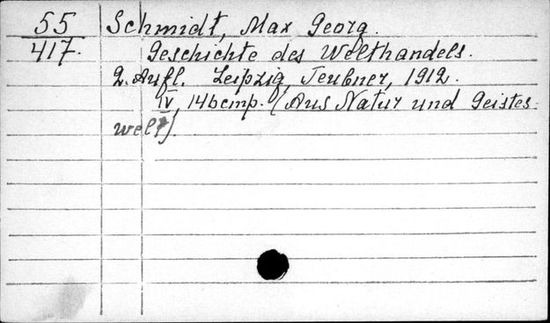 55 Schmidt, Max Georg.
417. Geschichte des Welthandels.
2. Aufl. Leipzig, Teubner, 1912.
IV, 146 стр. (Aus Natur und Geistes-
welt).